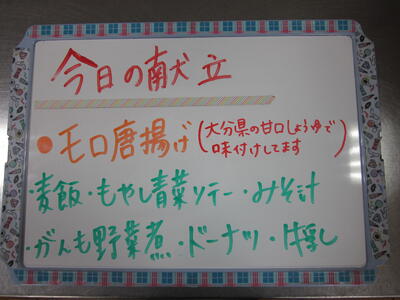 今日の献立
●モロ唐揚げ(大分県の甘口しょうゆで味付けしてます)
麦飯・もやし青菜ソテー・みそ汁
・がんも野菜煮・ドーナツ・牛乳